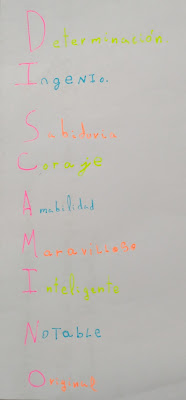 Determinación
IngeNIo.
Sabidoria
Corage
Amabilidad
Maravilloso
Inteligente
NoTable
Original